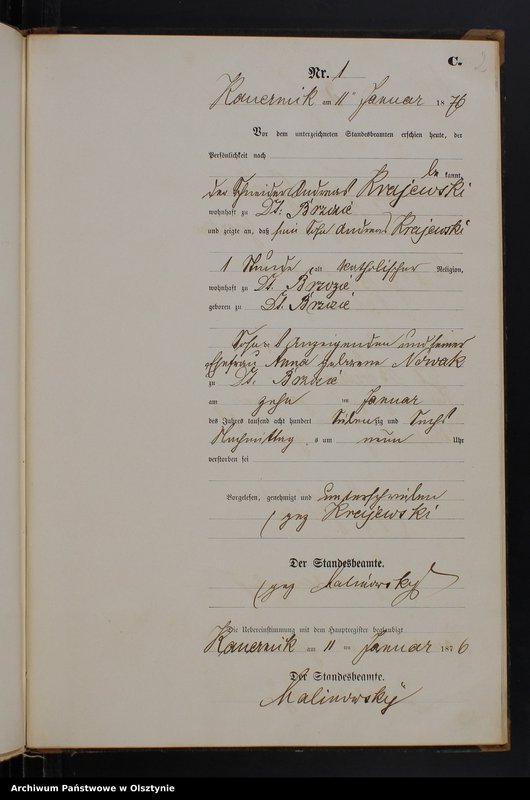 C.
2
Nr. 1
Kauernik am 11 Januar 1876
Vor dem unterzeichneten Standesbeamten erschien heute, der
Persönlichkeit nach
be kannt,
der Schneider Andreas Krajewski
wohnhaft zu Dt. Brzozie
und zeigte an, daß sein Sohn Andreas Krajewski
1 Stunde alt katholischer Religion,
wohnhaft zu Dt. Brzozie
geboren zu Dt. Brzozie
Sohn des Anzeigenden und seiner
Ehefrau Anna geborene Nowak
zu Dt. Brzozie
am zehn ten Januar
des Jahres tausend acht hundert siebenzig und sechs
Nachmittag s um neun Uhr
verstorben sei
Vorgelesen, genehmigt und unterschrieben
(gez Krajewski
Der Standesbeamte.
(gez Malinowsky
Die Uebereinstimmung mit dem Hauptregister beglaubigt
Kauernik am 11 ten Januar 1876
Der Standesbeamte.
Malinowsky
Archiwum Państwowe w Olsztynie